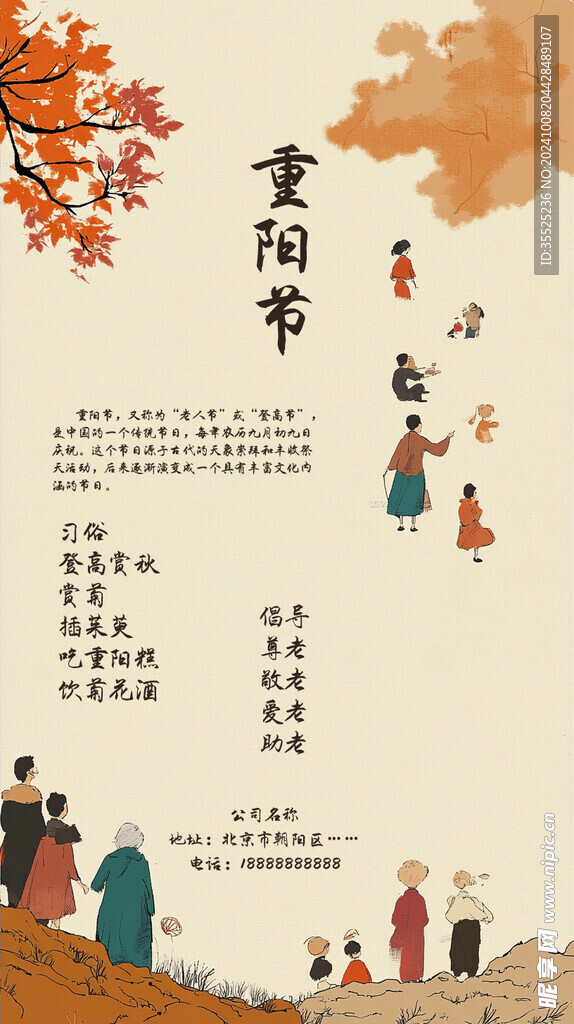 重阳节
重阳节，又称为“老人节”或“登高节”，
是中国的一个传统节日，每年农历九月初九日
庆祝。这个节日源于古代的天象崇拜和丰收祭
天活动，后来逐渐演变成一个具有丰富文化内
涵的节日。
习俗
登高赏秋
赏菊
插茱萸
吃重阳糕
饮菊花酒
倡导
尊老
敬老
爱老
助老
公司名称
地址：北京市朝阳区……
电话：18888888888
ID:35525236 NO:20241008204428489107
昵享网 www.nipic.cn